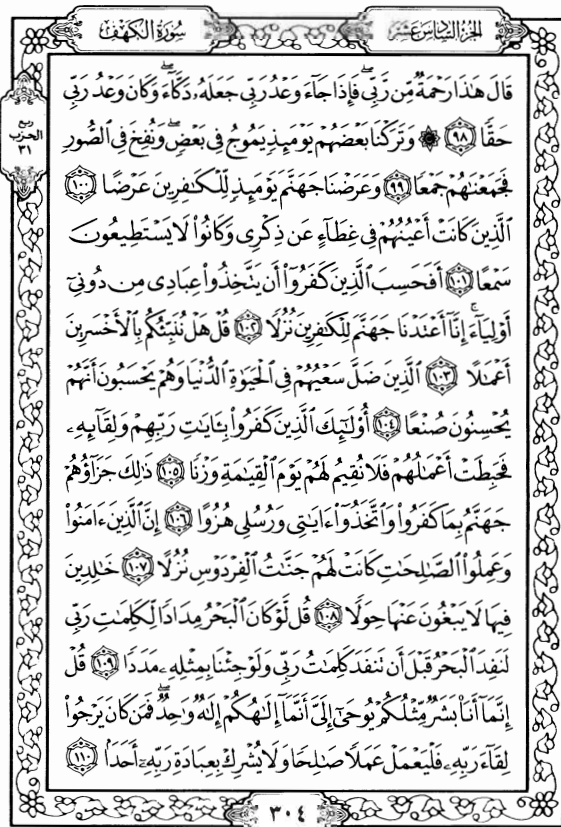 سُورَةُ الكَهْفِ
الجُزْءُ السَّادِسَ عَشَرَ
ربع
الحزب
٣١
قَالَ هَٰذَا رَحْمَةٌ مِّن رَّبِّي ۖ فَإِذَا جَآءَ وَعْدُ رَبِّي جَعَلَهُۥ دَكَّآءَ ۖ وَكَانَ وَعْدُ رَبِّي
حَقًّا ٩٨ ۞ وَتَرَكْنَا بَعْضَهُمْ يَوْمَئِذٍ يَمُوجُ فِي بَعْضٍ ۖ وَنُفِخَ فِي الصُّورِ
فَجَمَعْنَٰهُمْ جَمْعًا ٩٩ وَعَرَضْنَا جَهَنَّمَ يَوْمَئِذٍ لِّلْكَٰفِرِينَ عَرْضًا ١٠٠
الَّذِينَ كَانَتْ أَعْيُنُهُمْ فِي غِطَآءٍ عَن ذِكْرِي وَكَانُوا۟ لَا يَسْتَطِيعُونَ
سَمْعًا ١٠١ أَفَحَسِبَ الَّذِينَ كَفَرُوٓا۟ أَن يَتَّخِذُوا۟ عِبَادِي مِن دُونِيٓ
أَوْلِيَآءَ ۚ إِنَّآ أَعْتَدْنَا جَهَنَّمَ لِلْكَٰفِرِينَ نُزُلًا ١٠٢ قُلْ هَلْ نُنَبِّئُكُم بِالْأَخْسَرِينَ
أَعْمَٰلًا ١٠٣ الَّذِينَ ضَلَّ سَعْيُهُمْ فِي الْحَيَوٰةِ الدُّنْيَا وَهُمْ يَحْسَبُونَ أَنَّهُمْ
يُحْسِنُونَ صُنْعًا ١٠٤ أُو۟لَٰٓئِكَ الَّذِينَ كَفَرُوا۟ بِـَٔايَٰتِ رَبِّهِمْ وَلِقَآئِهِۦ
فَحَبِطَتْ أَعْمَٰلُهُمْ فَلَا نُقِيمُ لَهُمْ يَوْمَ الْقِيَٰمَةِ وَزْنًا ١٠٥ ذَٰلِكَ جَزَآؤُهُمْ
جَهَنَّمُ بِمَا كَفَرُوا۟ وَاتَّخَذُوٓا۟ ءَايَٰتِي وَرُسُلِي هُزُوًا ١٠٦ إِنَّ الَّذِينَ ءَامَنُوا۟
وَعَمِلُوا۟ الصَّٰلِحَٰتِ كَانَتْ لَهُمْ جَنَّٰتُ الْفِرْدَوْسِ نُزُلًا ١٠٧ خَٰلِدِينَ
فِيهَا لَا يَبْغُونَ عَنْهَا حِوَلًا ١٠٨ قُل لَّوْ كَانَ الْبَحْرُ مِدَادًا لِّكَلِمَٰتِ رَبِّي
لَنَفِدَ الْبَحْرُ قَبْلَ أَن تَنفَدَ كَلِمَٰتُ رَبِّي وَلَوْ جِئْنَا بِمِثْلِهِۦ مَدَدًا ١٠٩ قُلْ
إِنَّمَآ أَنَا۠ بَشَرٌ مِّثْلُكُمْ يُوحَىٰٓ إِلَيَّ أَنَّمَآ إِلَٰهُكُمْ إِلَٰهٌ وَٰحِدٌ ۖ فَمَن كَانَ يَرْجُوا۟
لِقَآءَ رَبِّهِۦ فَلْيَعْمَلْ عَمَلًا صَٰلِحًا وَلَا يُشْرِكْ بِعِبَادَةِ رَبِّهِۦٓ أَحَدًۢا ١١٠
٣٠٤